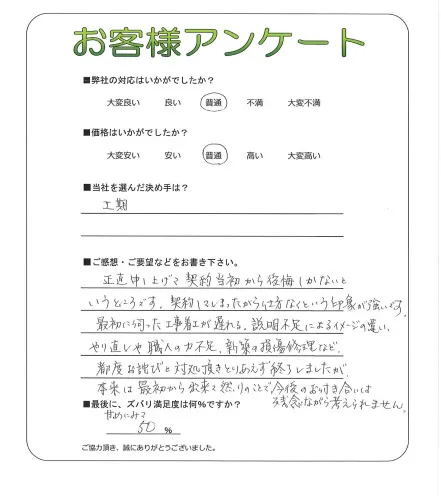 お客様アンケート
■弊社の対応はいかがでしたか？
大変良い 良い 普通 不満 大変不満
■価格はいかがでしたか？
大変安い 安い 普通 高い 大変高い
■当社を選んだ決め手は？
工期
■ご感想・ご要望などをお書き下さい。
正直申し上げて契約当初から後悔しかないと
いうところです。契約してしまったから仕方なくという印象が強いです。
最初に伺った工事着工が遅れる。説明不足によるイメージの違い、
やり直しや職人の力不足、新築の損傷修理など、
都度お詫びと対処頂きとりあえず終了しましたが、
本来は最初から出来て然りのことで今後のお付き合いは
残念ながら考えられません。
■最後に、ズバリ満足度は何％ですか？
甘めにみて
50 %
ご協力頂き、誠にありがとうございました。